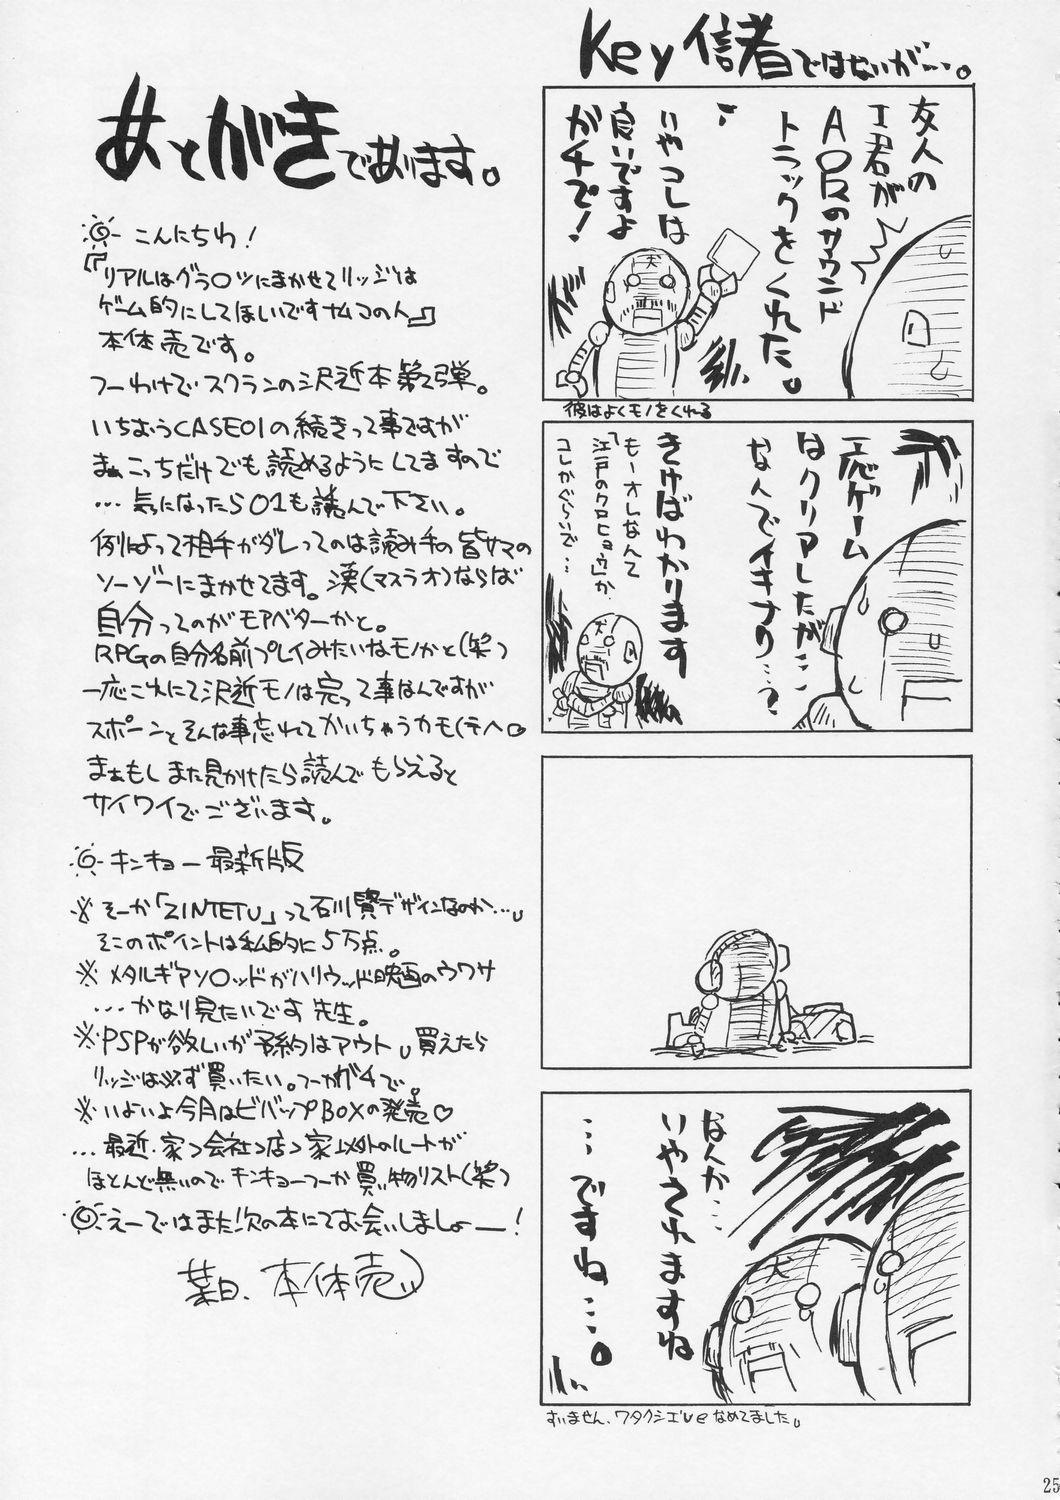 Key信者ではないが…。
友人の
I君が
AIRのサウンド
トラックをくれた。
いやコレは
良いですよ
ガチで!
犬
彼はよくモノをくれる
一応ゲーム
はクリアしたが…
なんでイキナリ…?
きけばわかります
もーオレなんて
「江戸のクロヒョウ」か、
コレかぐらいで…
なんか…
いやされますね
…ですね…。
すいません、ワタクシ なめてました。
あとがきであります。
こんにちわ!
『リアルはグラ○ツにまかせてリッジは
ゲーム的にしてほしいですナムコの人』
本体売です。
つーわけでスクランの沢近本第2弾。
いちおうCASE01の続きって事ですが
まぁこっちだけでも読めるようにしてますので
…気になったら01も読んで下さい。
例によって相手がダレってのは読み手の皆サマの
ソーゾーにまかせてます。漢(マスラオ)ならば
自分ってのがモアベターかと。
RPGの自分名前プレイみたいなモノかと(笑)
一応これにて沢近モノは完って事なんですが
スポーンとそんな事忘れてかいちゃうカモ(テヘ。
まぁもしまた見かけたら読んでもらえると
サイワイでございます。
キンキョー最新版
※そーか「ZINTETU」って石川賢デザインなのか…。
そこのポイントは私的に5万点。
※メタルギアソ○ッドがハリウッド映画のウワサ
…かなり見たいです先生。
※PSPが欲しいが予約はアウト。買えたら
リッジは必ず買いたい。つーかガチで。
※いよいよ今月はビバップBOXの発売♡
…最近、家→会社→店→家以外のルートが
ほとんど無いのでキンキョーつーか買い物リスト(笑)
えーではまた次の本にてお会いしましょー!
葉日、本体売
25